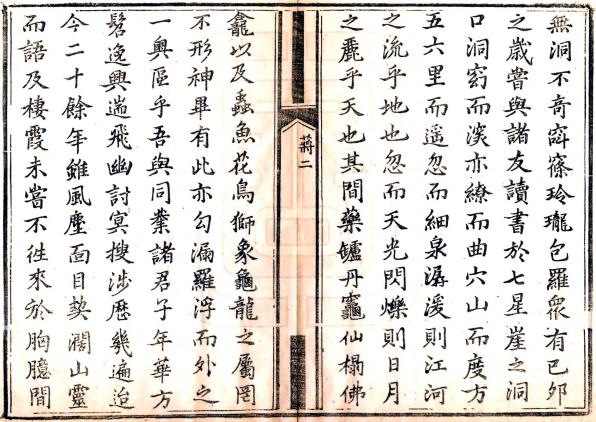 無洞不奇窅窱玲瓏包羅衆有已夘
之歲嘗與諸友讀書於七星崖之洞
口洞窈而深亦繚而曲穴山而度方
五六里而遥忽而細泉潺湲則江河
之流乎地也忽而天光閃爍則日月
之麗乎天也其間藥鑪丹竈仙榻佛
蔣二
龕以及蟲魚花鳥獅象龜龍之屬罔
不形神畢有此亦勾漏羅浮而外之
一奥區乎吾與同業諸君子年華方
髫逸興遄飛幽討冥搜涉歷幾遍迨
今二十餘年雖風塵面目契濶山靈
而語及棲霞未嘗不徃來於胸臆間